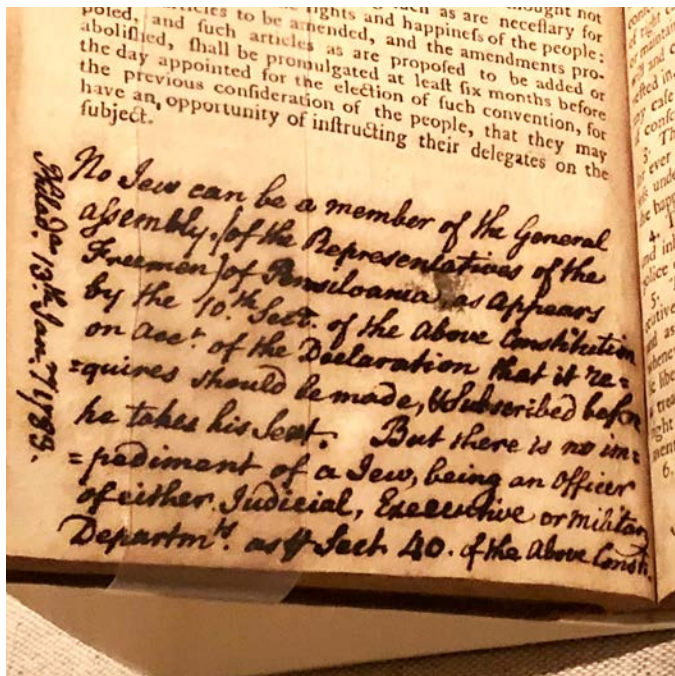 thought not
such as are neceſſary for
rights and happineſs of the people:
articles to be amended, and the amendments pro-
poſed, and ſuch articles as are propoſed to be added or
aboliſhed, ſhall be promulgated at leaſt ſix months before
the day appointed for the election of ſuch convention, for
the previous conſideration of the people, that they may
have an opportunity of inſtructing their delegates on the
ſubject.
No Jew can be a member of the General
aſsembly. [of the Representatives of the
Freemen] of Pensilvania, as appears
by the 10.th Sect. of the above Constitution
on acct. of the Declaration that it re=
=quires should be made, & Subscribed before
he takes his Seat. But there is no im=
=pediment of a Jew, being an Officer
of either Judicial, Executive or militar
Departmts. as Sect. 40. of the above Consti.
Philada. 13th. Jan. 1783.
3. Th
4.
5.
6.